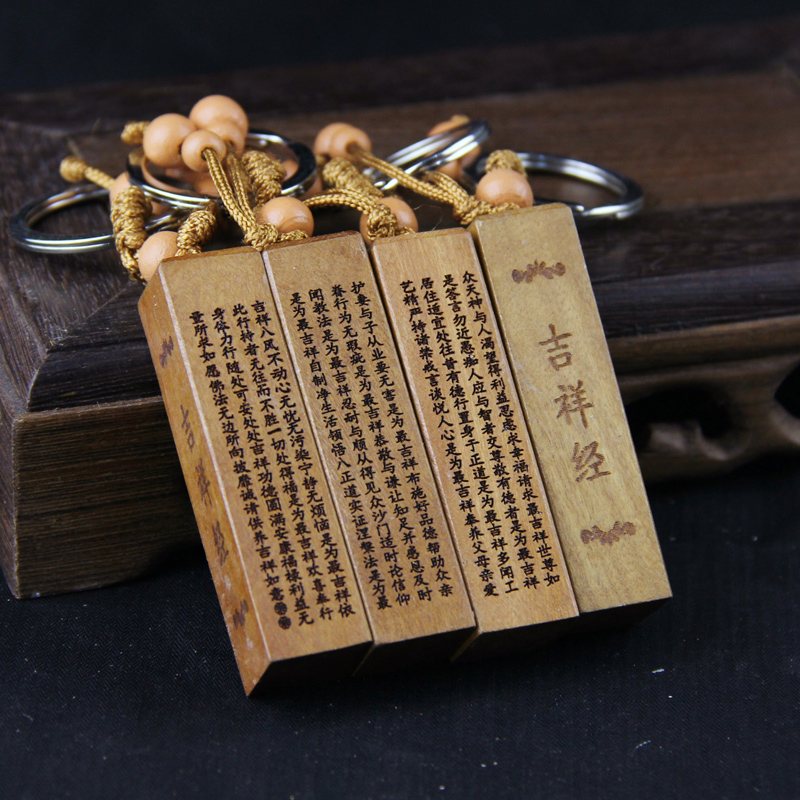 吉祥经
众天神与人渴望得利益思虑求幸福请求最吉祥世尊如
是答言勿近愚痴人应与智者交尊敬有德者是为最吉祥
居住适宜处往昔有德行置身于正道是为最吉祥多闻工
艺精严持诸禁戒言谈悦人心是为最吉祥奉养父母亲爱
护妻与子从业要无害是为最吉祥布施好品德帮助众亲
眷行为无瑕疵是为最吉祥恭敬与谦让知足并感恩及时
闻教法是为最吉祥忍耐与顺从得见众沙门适时论信仰
是为最吉祥自制净生活领悟八正道实证涅槃法是为最
吉祥八风不动心无忧无污染宁静无烦恼是为最吉祥依
此行持者无往而不胜一切处得福是为最吉祥欢喜奉行
身体力行随处可安处处吉祥功德圆满安康福禄利益无
量所求如愿佛法无边所向披靡诚请供养吉祥如意
吉祥经